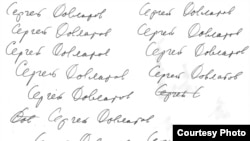 Сергей Довлатов Сергей Довлатов
Сергей Довлатов Сергей Довлатов
Сергей Довлатов Сергей Довлатов
Сергей Довлатов Сергей Довлатов
Сергей Довлатов
Сергей Довлатов
Courtesy Photo